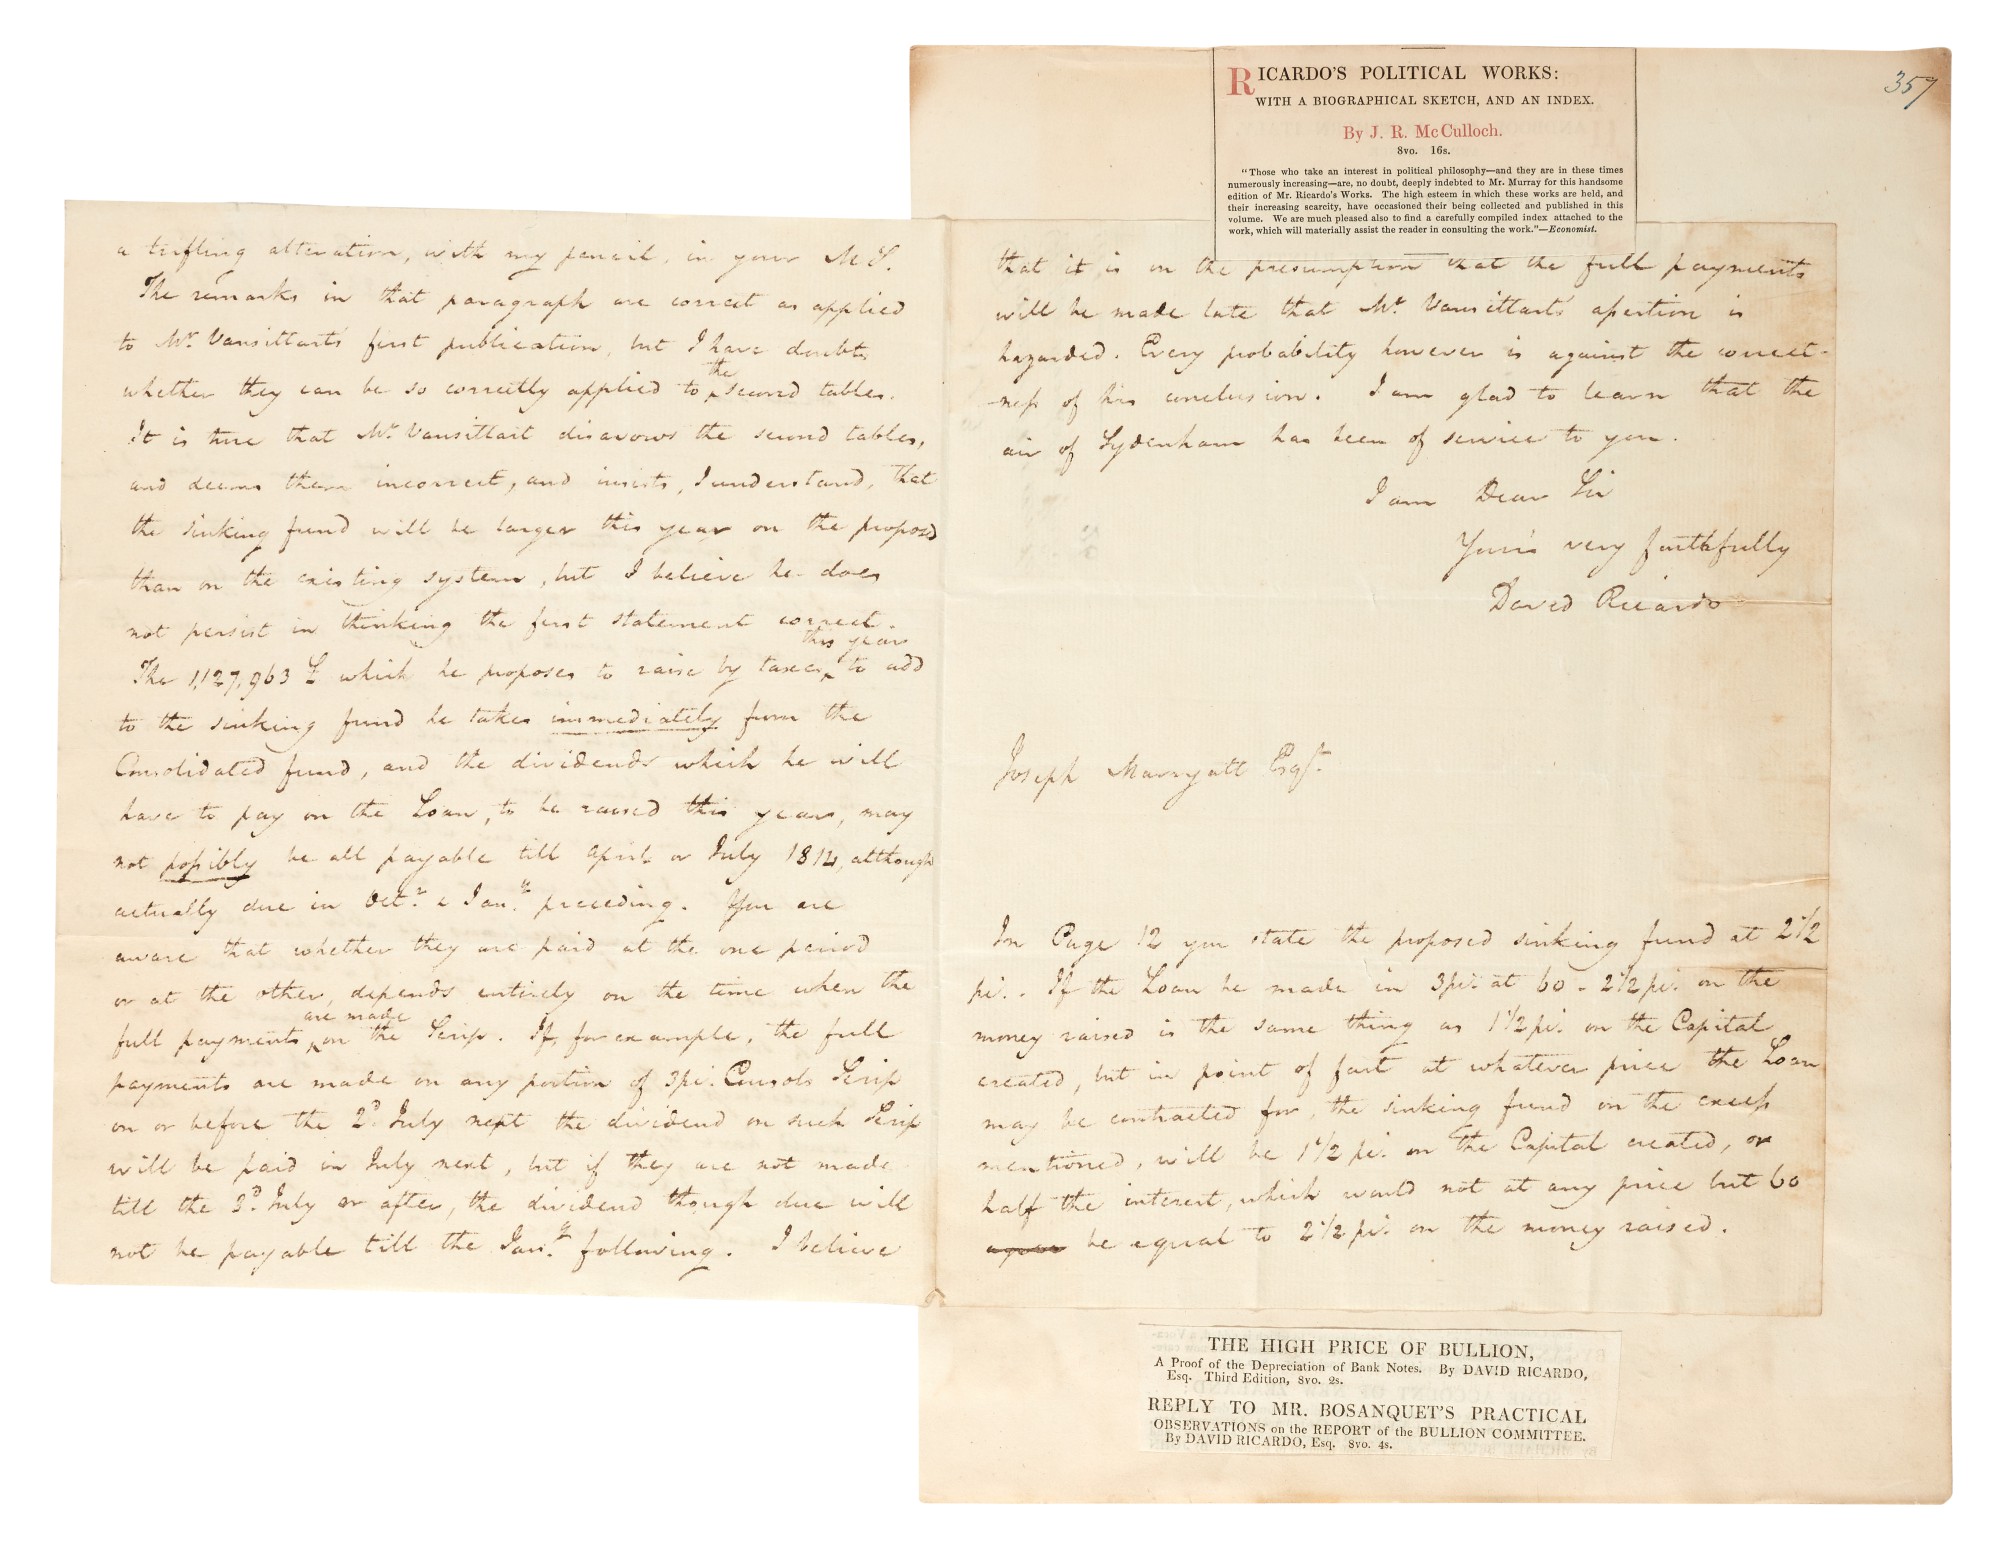 a trifling alteration, with my pencil, in your MS.
The remarks in that paragraph are correct as applied
to Mr. Vansittart's first publication, but I have doubts
whether they can be so correctly applied to the second tables.
It is true that Mr. Vansittart disavows the second tables,
and deems them incorrect, and insists, I understand, that
the sinking fund will be larger this year on the proposed
than on the existing system, but I believe he does
not persist in thinking the first statement correct.
The 1,127,963 £ which he proposes to raise by taxes this year to add
to the sinking fund he takes immediately from the
Consolidated fund, and the dividends which he will
have to pay on the Loan, to be raised this year, may
not possibly be all payable till April or July 1814, although
actually due in Octr. & Jany. preceding. You are
aware that whether they are paid at the one period
or at the other, depends entirely on the time when the
full payments are made on the Scrip. If, for example, the full
payments are made on any portion of 3 pct. Consols Scrip
on or before the 2d. July next the dividend on such Scrip
will be paid in July next, but if they are not made
till the 3d. July or after, the dividend though due will
not be payable till the Jany. following. I believe
357
RICARDO'S POLITICAL WORKS:
WITH A BIOGRAPHICAL SKETCH, AND AN INDEX.
By J. R. McCulloch.
8vo. 16s.
"Those who take an interest in political philosophy—and they are in these times
numerously increasing—are, no doubt, deeply indebted to Mr. Murray for this handsome
edition of Mr. Ricardo's Works. The high esteem in which these works are held, and
their increasing scarcity, have occasioned their being collected and published in this
volume. We are much pleased also to find a carefully compiled index attached to the
work, which will materially assist the reader in consulting the work."—Economist.
that it is on the presumption that the full payments
will be made late that Mr. Vansittart's assertion is
hazarded. Every probability however is against the correct-
ness of his conclusion. I am glad to learn that the
air of Sydenham has been of service to you.
I am Dear Sir
Yours very faithfully
David Ricardo
Joseph Marryatt Esqr.
In Page 12 you state the proposed sinking fund at 2 1/2
pct. If the Loan be made in 3 pct. at 60 - 2 1/2 pct. on the
money raised is the same thing as 1 1/2 pct. on the Capital
created, but in point of fact at whatever price the Loan
may be contracted for, the sinking fund on the excess
mentioned, will be 1 1/2 pct. on the Capital created, or
half the interest, which would not at any price but 60
be equal to 2 1/2 pct. on the money raised.
THE HIGH PRICE OF BULLION,
A Proof of the Depreciation of Bank Notes. By DAVID RICARDO,
Esq. Third Edition, 8vo. 2s.
REPLY TO MR. BOSANQUET'S PRACTICAL
OBSERVATIONS on the REPORT of the BULLION COMMITTEE.
By DAVID RICARDO, Esq. 8vo. 4s.